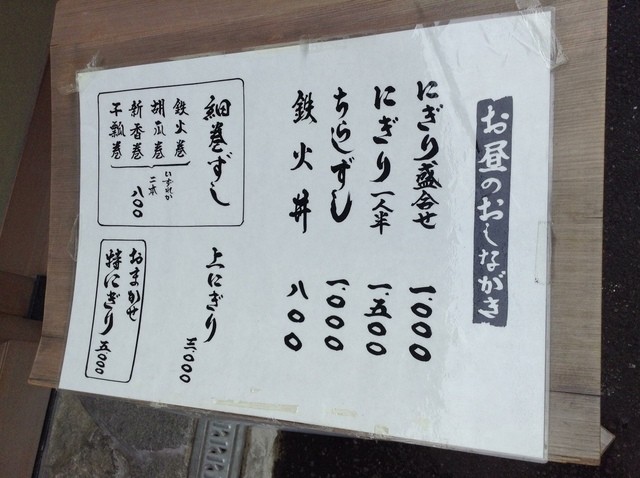 お昼のおしながき
にぎり盛合せ 一.〇〇〇
にぎり一人半 一.五〇〇
ちらしずし 一.〇〇〇
鉄火丼 八〇〇
上にぎり 三.〇〇〇
細巻ずし
鉄火巻
胡瓜巻
新香巻
干瓢巻
いずれか
二本
八〇〇
おまかせ
特にぎり 五.〇〇〇